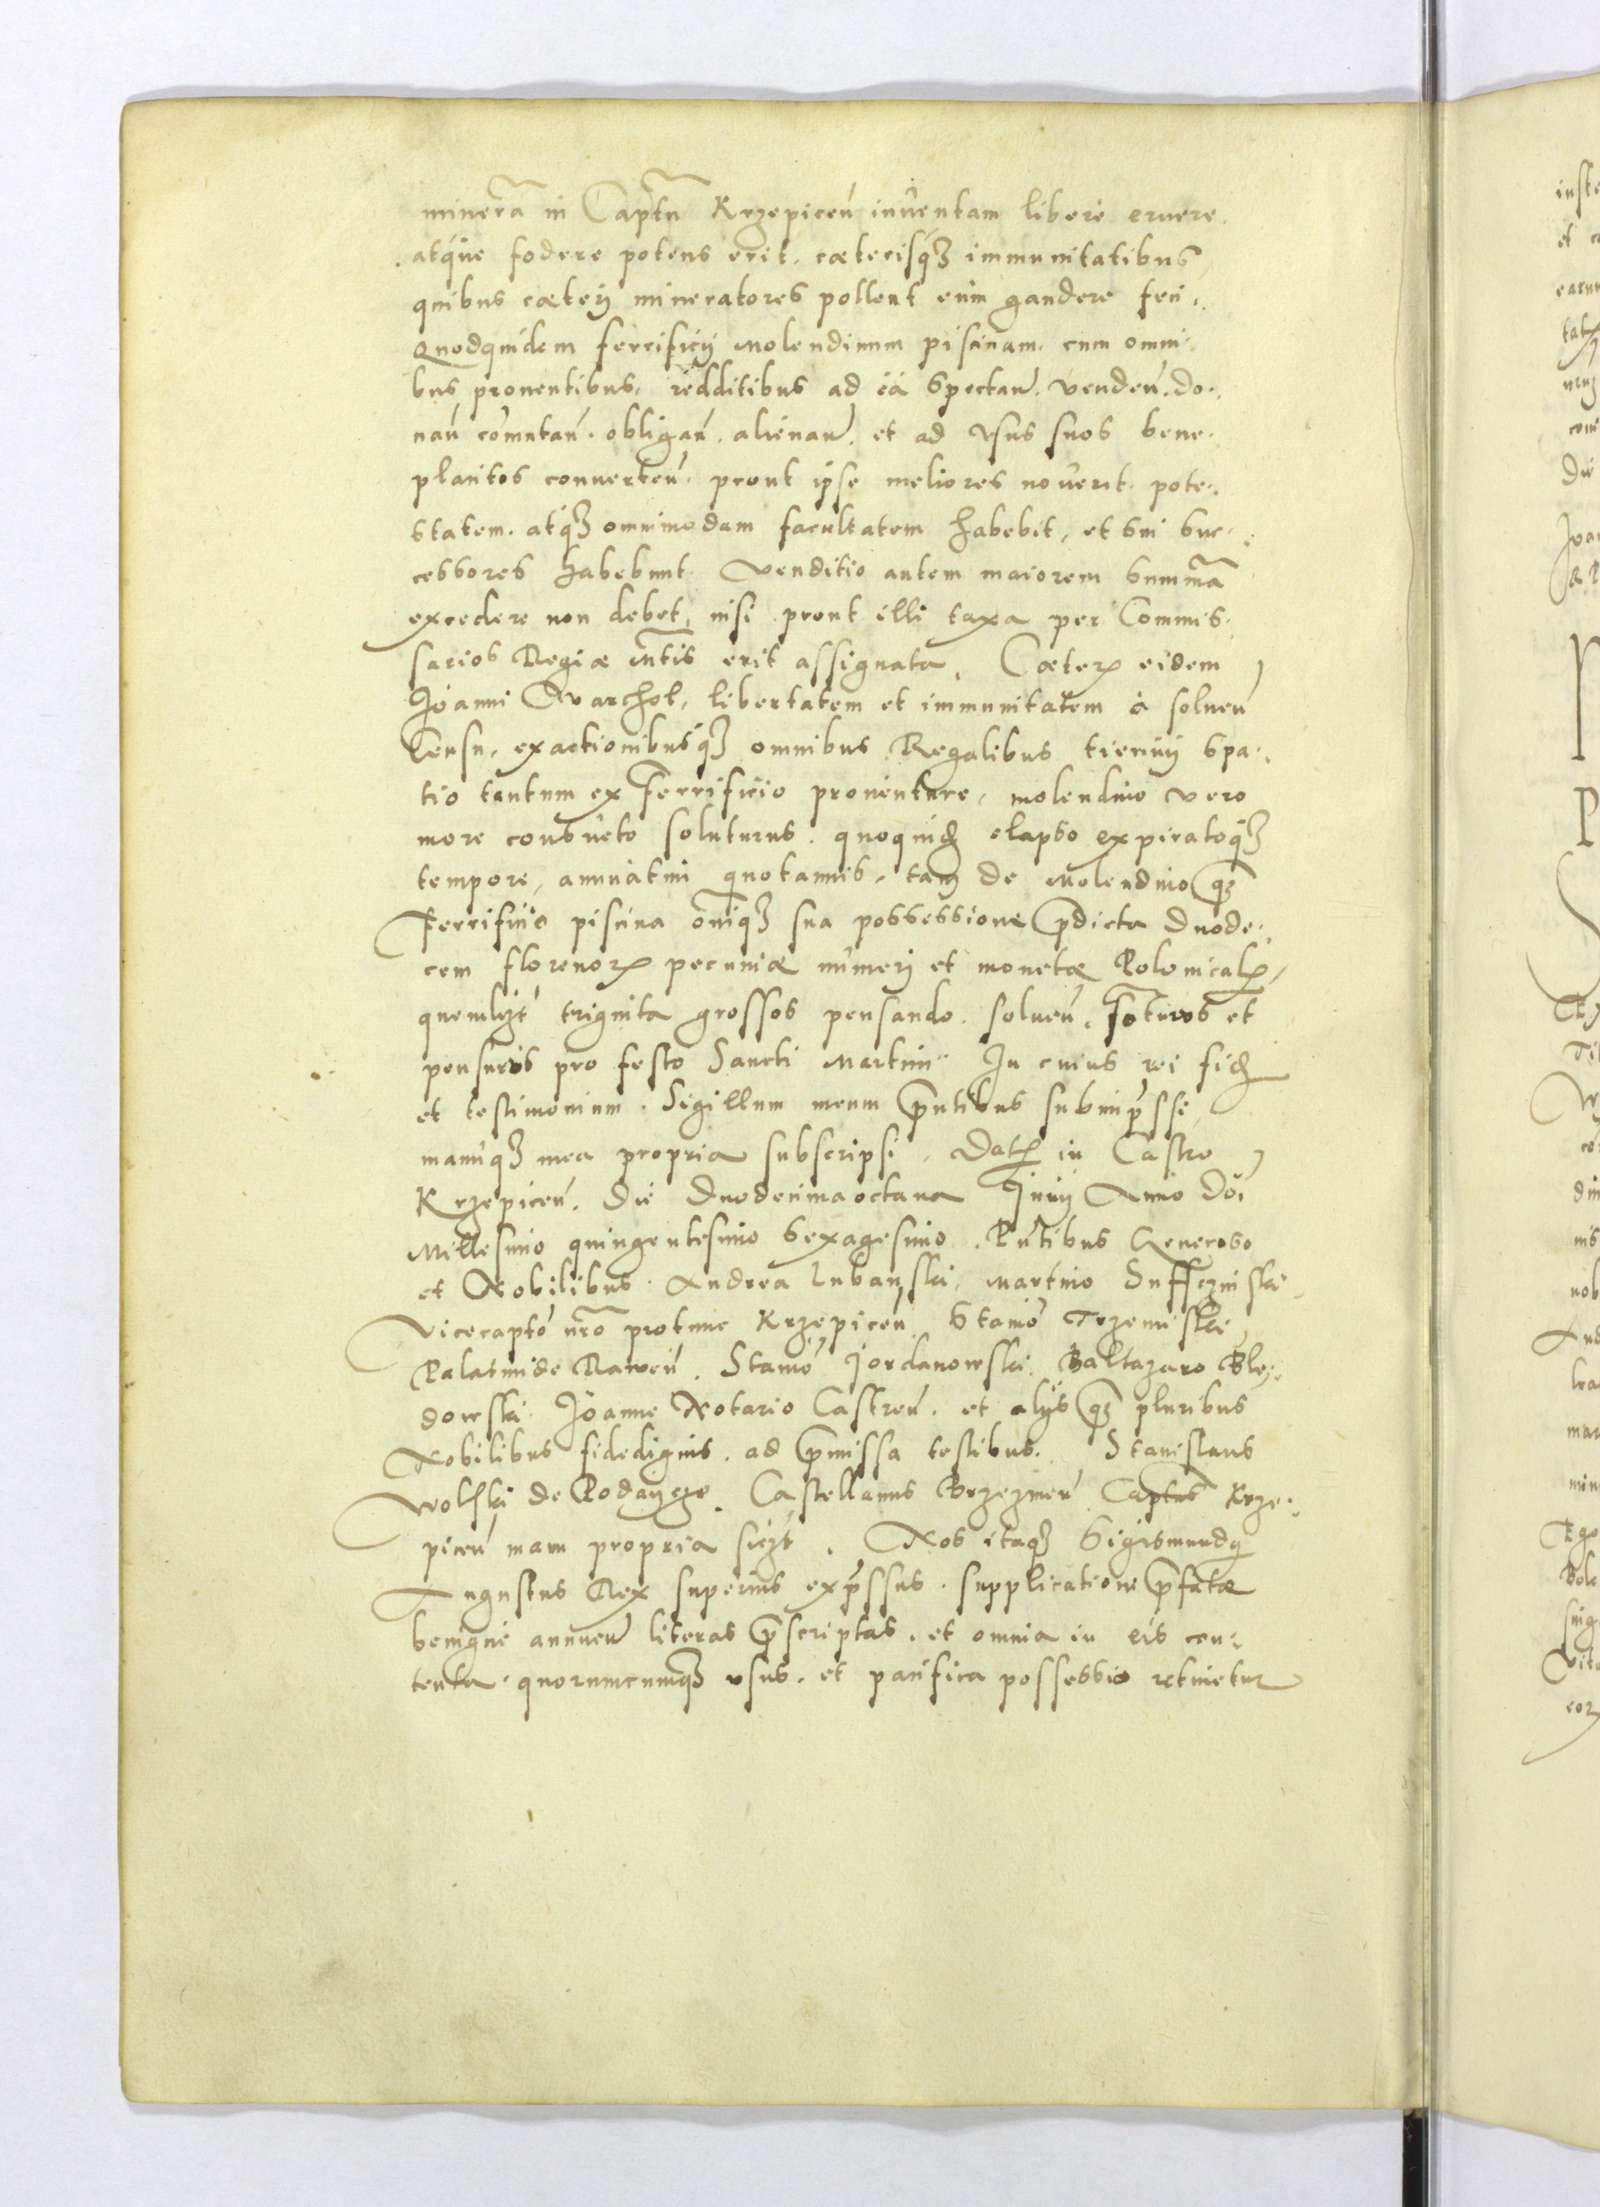 minerā in Captū Krzepiceń inuentam libere eruere
atque fodere potens erit, cæterisq3 immunitatibus
quibus cæterij mineratores pollent eum gaudere feci.
Quodquidem ferrificij Molendinum piscinam cum omni-
bus prouentibus, redditibus ad ea spectań. venden. do-
nań comutań. obligań. alienań. et ad vsus suos bene-
placitos conuerteń. prout ipse meliores nouerit. pote-
statem. atq3 omnimodam facultatem habebit, et sui suc-
cessores habebunt. Venditio autem maiorem summā
excedere non debet, nisi prout illi taxa per Commis-
sarios Regiæ Mtis erit assignata. Cæterɤ eidem
Joanni Warchol, libertatem et immunitatem a solueń
Censu, exactionibusq3 omnibus Regalibus triennij spa-
tio tantum ex Ferrificio prouenture, molendino vero
more consueto soluturus. quoquid elapso expiratoq3
tempore, annuatim quotannis, tam de Molendino q3
Ferrificio piscina oniq3 sua possessione pdicta duode-
cem florenorɤ pecuniæ numeri et monetæ Polonicalɤ,
quemlizt triginta grossos pensando. solueń. et
pensuros pro festo Sancti Martini. In cuius rei fid
et testimonium. Sigillum meum pntibus subimpssi
manuq3 mea propria subscripsi. Datɤ in Castro
Krzepiceń. Die Duodecima octaua Junij Anno Doī
Millesimo quingentesimo sexagesimo. Pntibus Generoso
et Nobilibus. Andrea Lubanski, Martino Suffczinski
Vicecaptō nrō protunc Krzepiceń Stanō Trzemiski
Palatinide Raweń. Stanō Jordanowski. Baltazaro Ble-
dowski. Joanne Notario Castreń. et alijs q3 pluribus
Nobilibus fidedignis. ad pmissa testibus. Stanislaus
Wolski de Podaycze. Castellanus Brzezineń Captus Krze-
piceń manu propria sczt. Nos itaq3 Sigismundq
Augustus Rex superius expssus. supplicatione pfatæ
benigne annueń literas pscriptas. et omnia in eis con-
tenta. quorumcunq3 vsus. et pacifica possessio retinetur